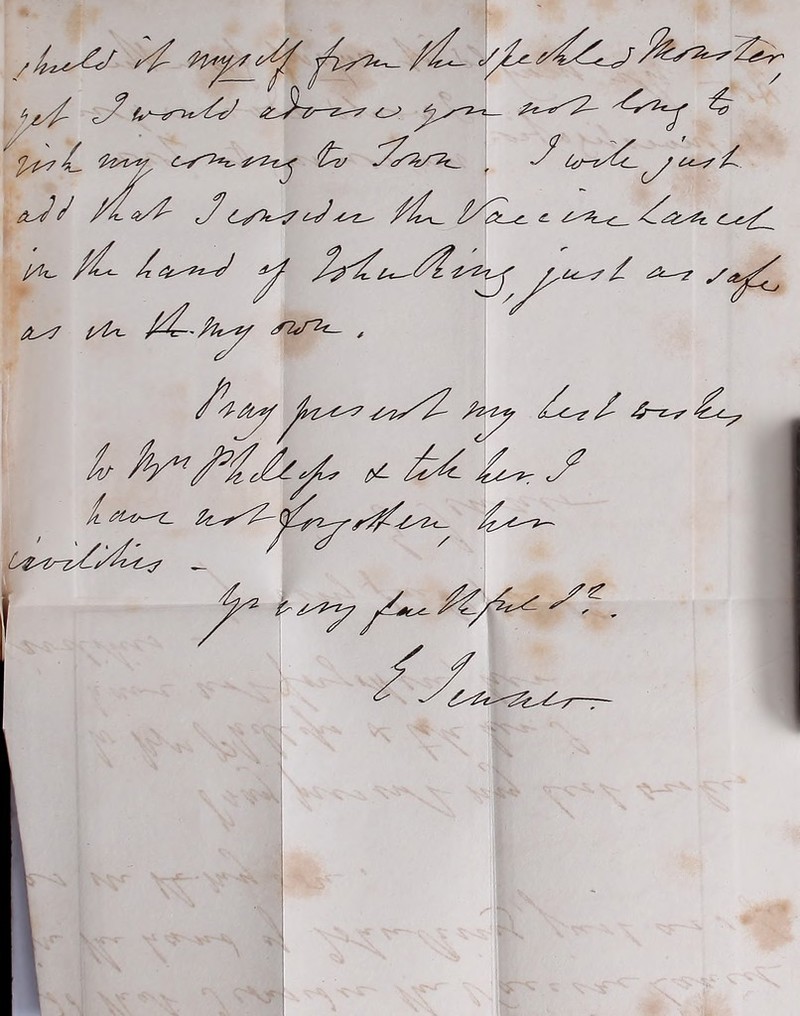 shield it myself from the speckled Monster,
yet I would advise you not long to
risk my coming to Town. I will just
add that I consider the Vaccine Lancet
in the hand of John Ring, just as safe
as in th my own.
Pray present my best wishes
to Mrs Phillips & tell her I
have not forgotten, her
civilities -
Yr very faithful St.
E Jenner.